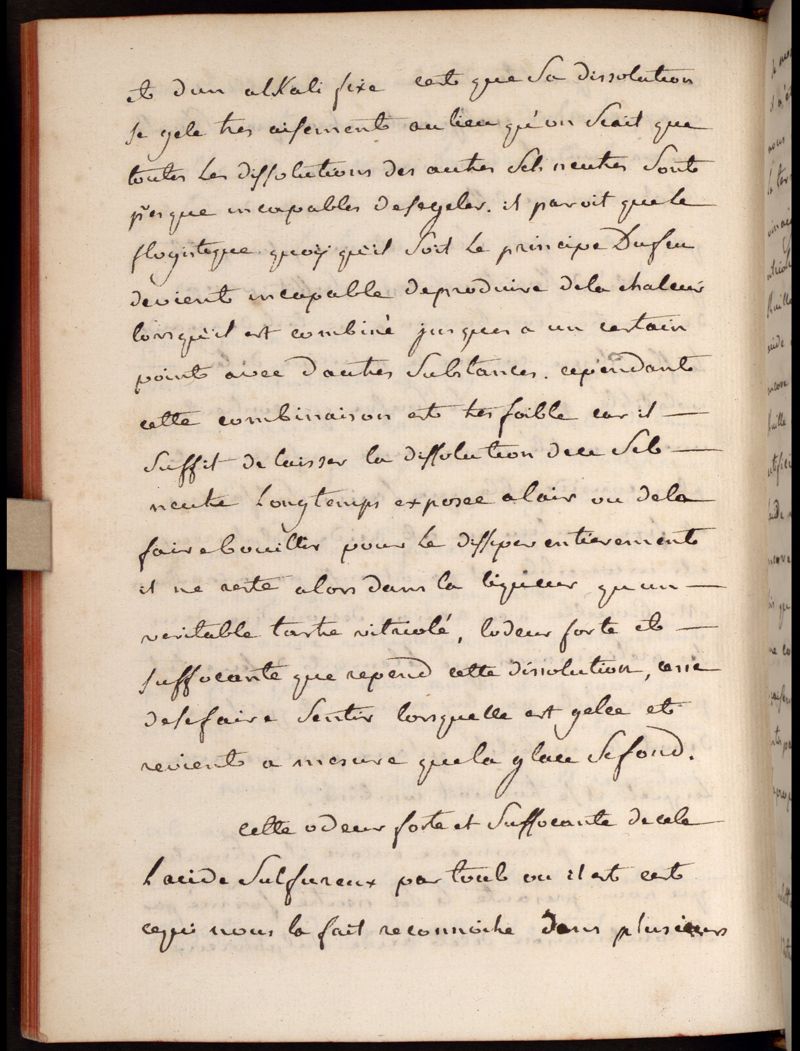 et dun alkali fixe cest que Sa dissolution
Se gele tres aisement au lieu qu'on Scait que
toutes Les dissolutions des autres Sels neutres Sont
presque incapables desegeler. il paroit que le
flogistique quoyqu'il Soit Le principe Dufeu
devient incapable deproduire dela chaleur
lorsqu'il est combiné jusques a un certain
point avec dautres Substances. cependant
cette combinaison est tres foible car il
Suffit de laisser la dissolution dece Sel
neutre Longtemps exposee alair ou dela
faire bouillir pour Le dissiper entierement
il ne reste alors dans la liqueur quun
veritable tartre vitriolé, lodeur forte et
suffocante que repend cette dissolution, cesse
desefaire Sentir lorsquelle est gelee et
revient a mesure que la glace Sefond.
cette odeur forte et Suffocante decele
Lacide Sulfureux par tout ou il est cest
cequi nous la fait reconnoitre dans plusieurs